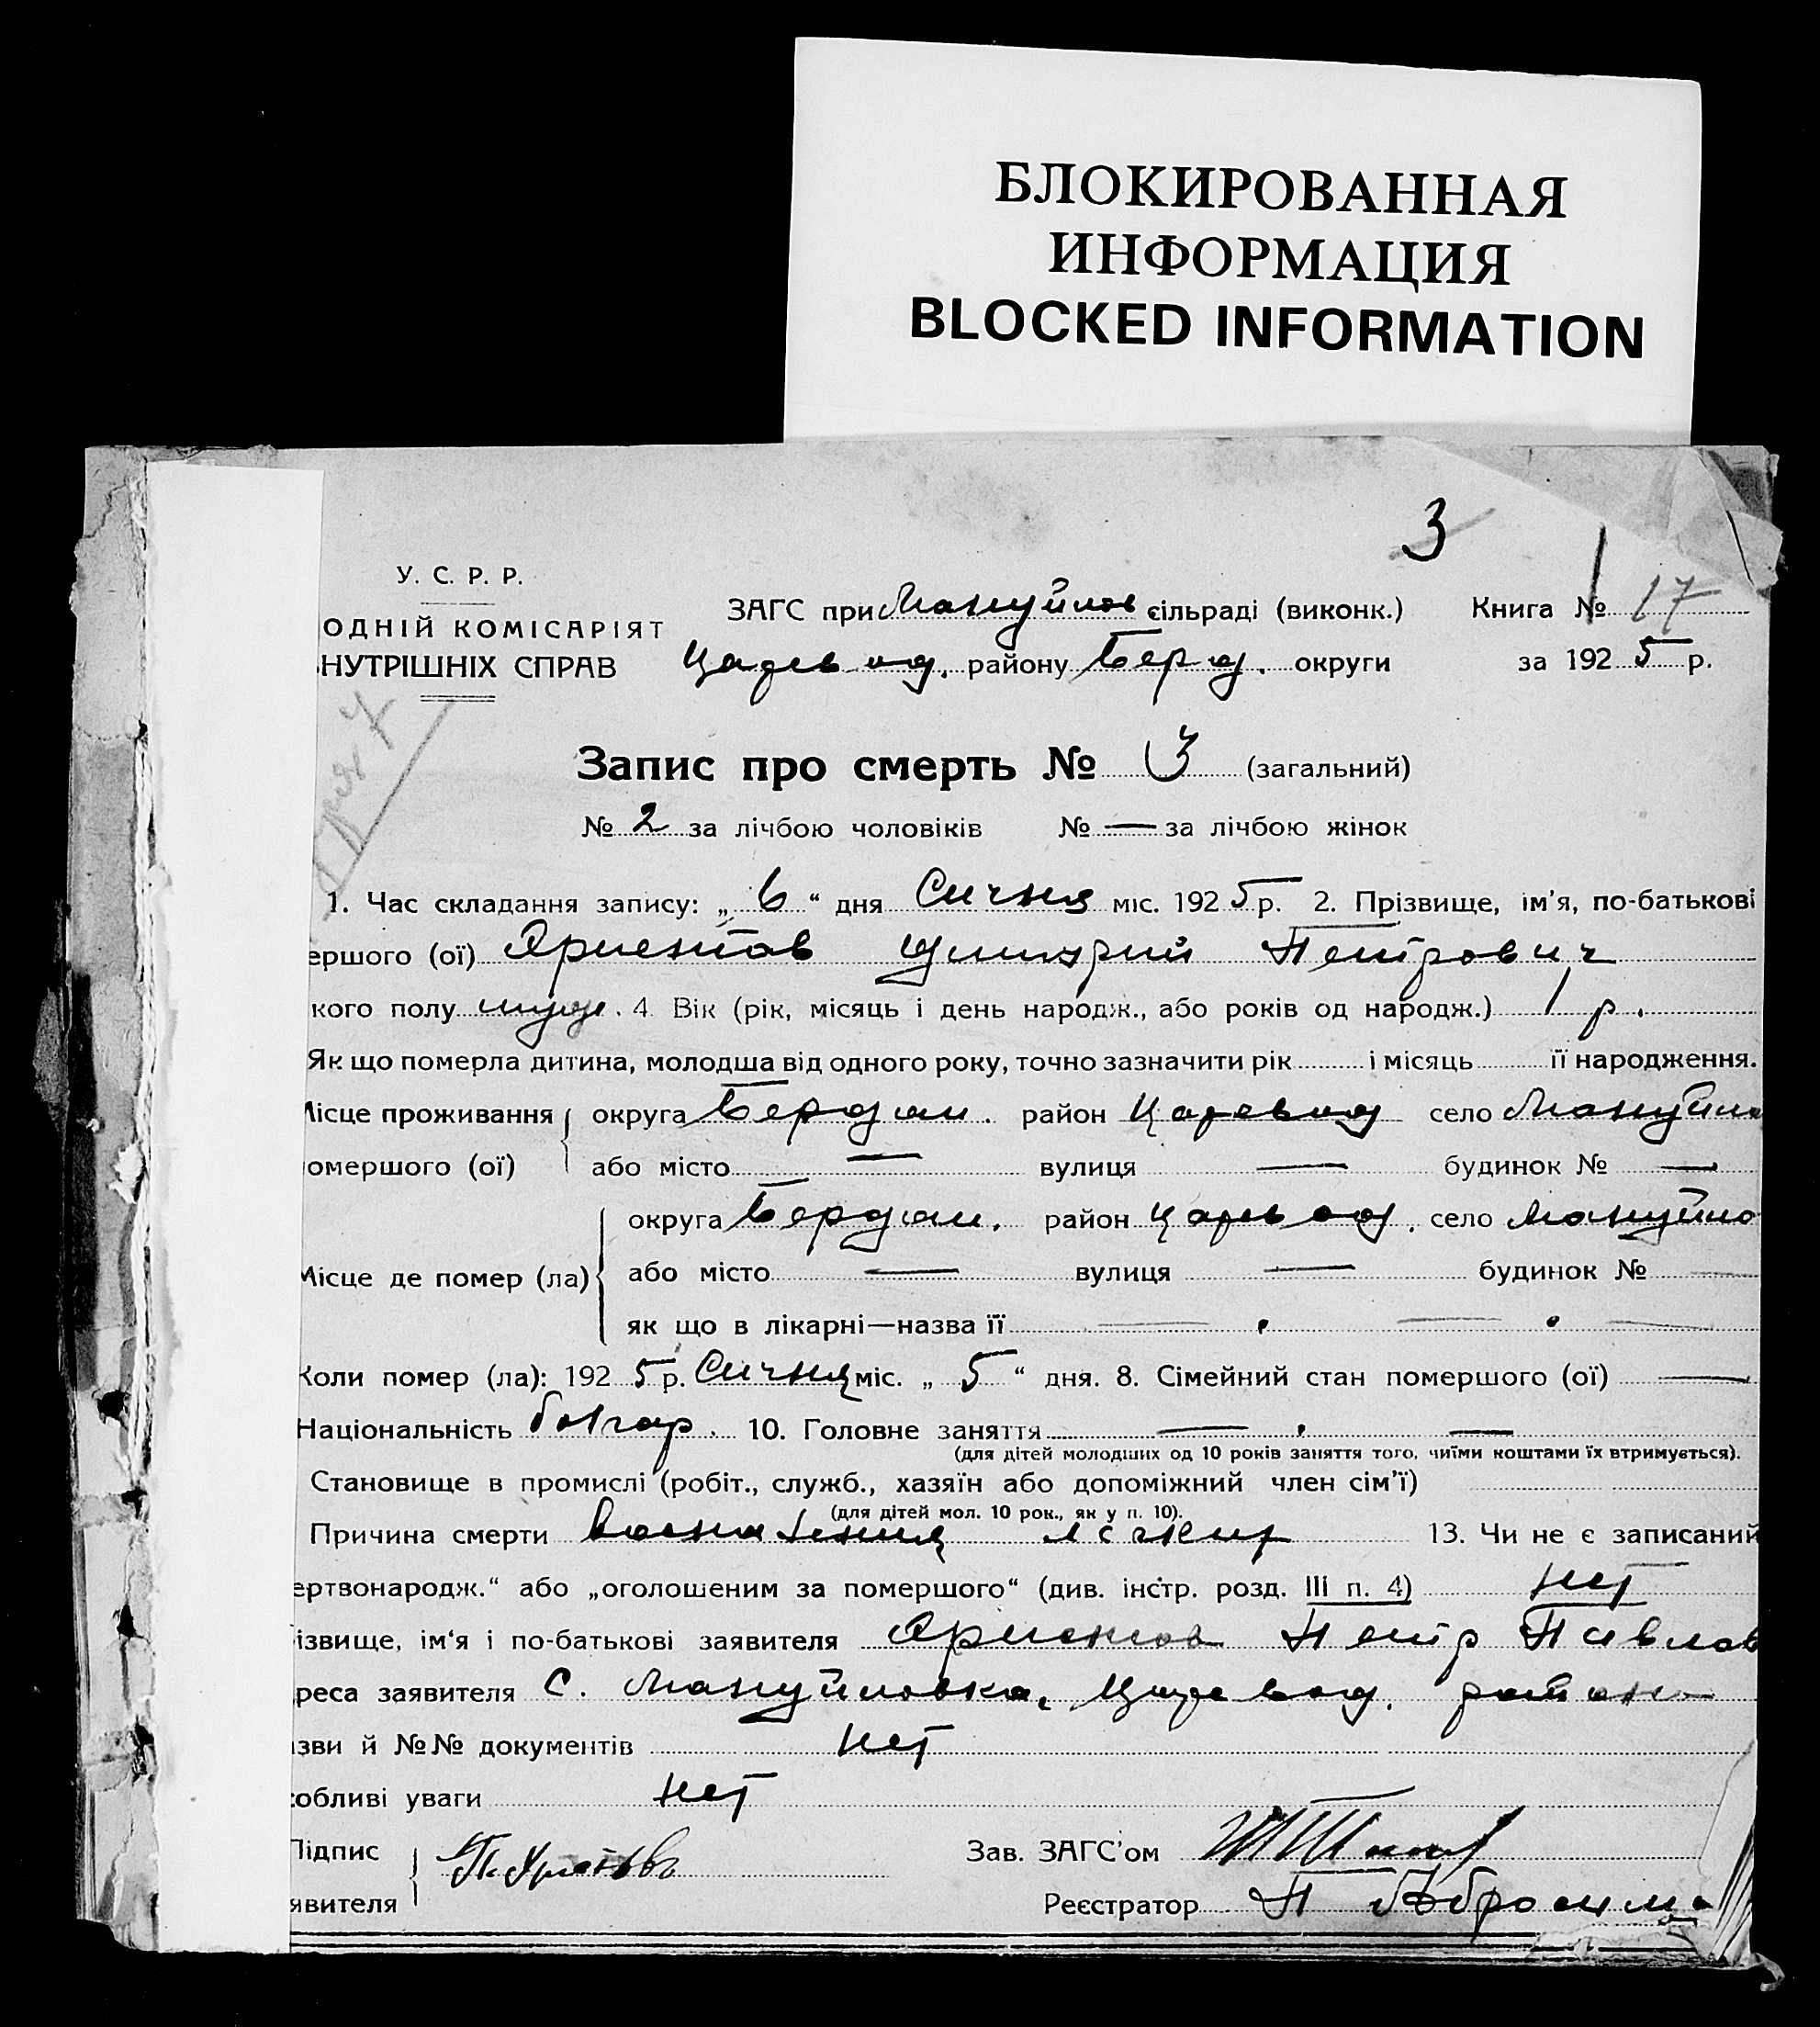 БЛОКИРОВАННАЯ
ИНФОРМАЦИЯ
BLOCKED INFORMATION
3
У. С. Р. Р.
ОДНІЙ КОМІСАРІЯТ
НУТРІШНІХ СПРАВ
ЗАГС при Мануйлов сільраді (виконк.) Книга № 17
Царевод. району Берд. округи за 1925 р.
Запис про смерть № 3 (загальний)
№ 2 за лічбою чоловіків № — за лічбою жінок
1. Час складання запису: „6“ дня Сичня міс. 1925 р. 2. Прізвище, ім'я, по-батькові
ершого (ої) Дмитрий Петрович
кого полу муж. 4. Вік (рік, місяць і день народж., або років од народж.) 1 р.
Як що померла дитина, молодша від одного року, точно зазначити рік і місяць її народження.
Місце проживання округа Бердян. район Царевод село Мануйло
омершого (ої) або місто — вулиця — будинок № —
округа Бердян. район Царевод. село Мануйло
Місце де помер (ла) або місто — вулиця — будинок № —
як що в лікарні—назва її
Коли помер (ла): 1925 р. Сичня міс. „5“ дня. 8. Сімейний стан помершого (ої) —
Національність болгар. 10. Головне заняття — . —
(для дітей молодших од 10 років заняття того, чиїми коштами їх втримується).
Становище в промислі (робіт., служб., хазяїн або допоміжний член сім'ї)
(для дітей мол. 10 рок., як у п. 10).
Причина смерти 13. Чи не є записаний
ертвонародж.“ або „оголошеним за помершого“ (див. інстр. розд. III п. 4) нет
ізвище, ім'я і по-батькові заявителя Петр Павлов
реса заявителя С. Мануйловка, Царевод. района
зви й №№ документів нет
обливі уваги нет
Підпис Зав. ЗАГС'ом
явителя Реєстратор